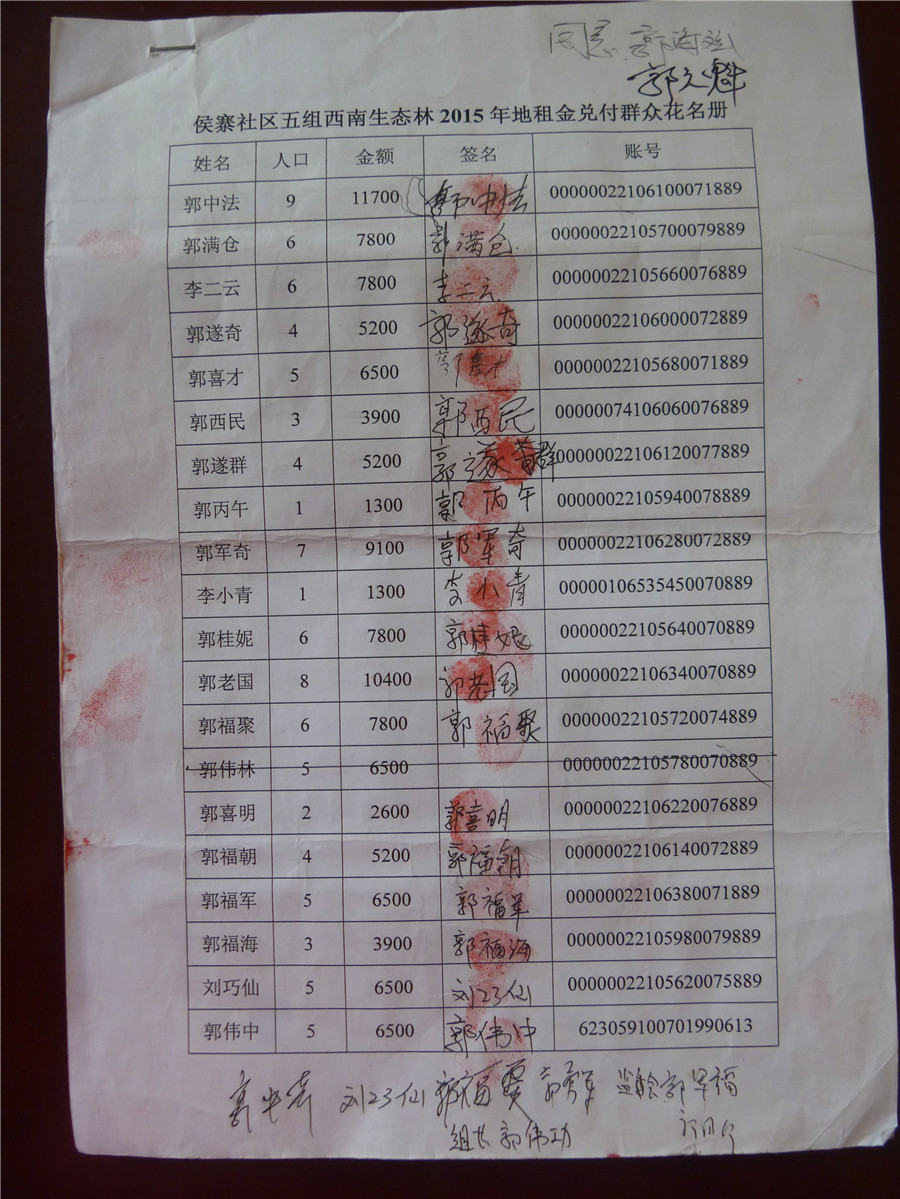 同意
郭文魁
侯寨社区五组西南生态林 2015 年地租金兑付群众花名册
姓名 人口 金额 签名 账号
郭中法 9 11700 郭中法 00000022106100071889
郭满仓 6 7800 郭满仓 00000022105700079889
李二云 6 7800 李二云 00000022105660076889
郭遂奇 4 5200 郭遂奇 00000022106000072889
郭喜才 5 6500 郭喜才 00000022105680071889
郭西民 3 3900 郭西民 00000074106060076889
郭遂群 4 5200 郭遂群 00000022106120077889
郭丙午 1 1300 郭丙午 00000022105940078889
郭军奇 7 9100 郭军奇 00000022106280072889
李小青 1 1300 李小青 00000106535450070889
郭桂妮 6 7800 郭桂妮 00000022105640070889
郭老国 8 10400 郭老国 00000022106340070889
郭福聚 6 7800 郭福聚 00000022105720074889
郭伟林 5 6500 00000022105780070889
郭喜明 2 2600 郭喜明 00000022106220076889
郭福朝 4 5200 郭福朝 00000022106140072889
郭福军 5 6500 郭福军 00000022106380071889
郭福海 3 3900 郭福海 00000022105980079889
刘巧仙 5 6500 刘巧仙 00000022105620075889
郭伟中 5 6500 郭伟中 623059100701990613
刘巧仙
组长郭伟功